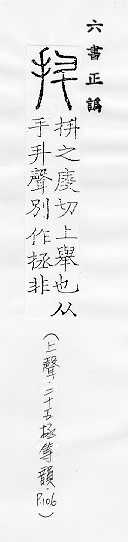 六書正譌
抍
抍之庱切上舉也从
手升聲別作拯非
(上聲.二十五拯等韻.P.106)